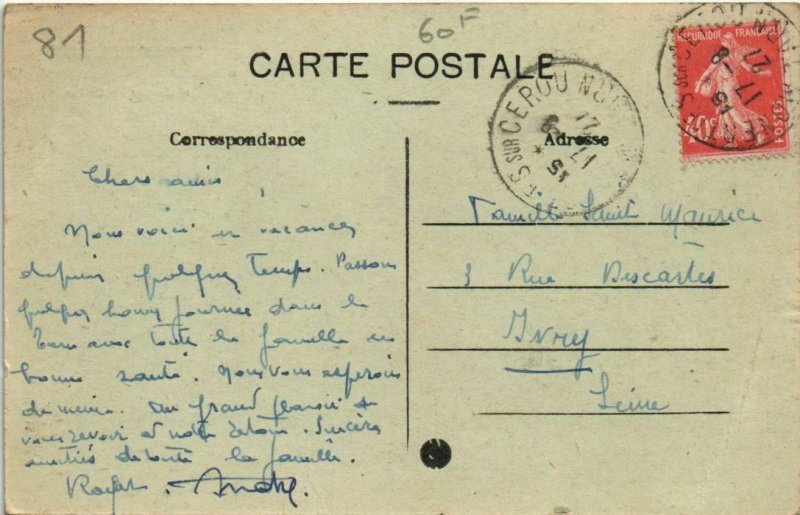 81
60F
CARTE POSTALE
Correspondance
Adresse
SUR CEROU
17
15
RÉPUBLIQUE FRANÇAISE
POSTES
Chers amis
Nous voici en vacances
depuis quelques temps. Passons
quelques bonnes journées dans le
Tarn avec toute la famille en
bonne santé. Nous vous espérons
de même. Au grand plaisir de
vous revoir à notre retour. Sincères
amitiés de toute la famille.
André
Famille Saint Maurice
3 Rue Descartes
Ivry
Seine